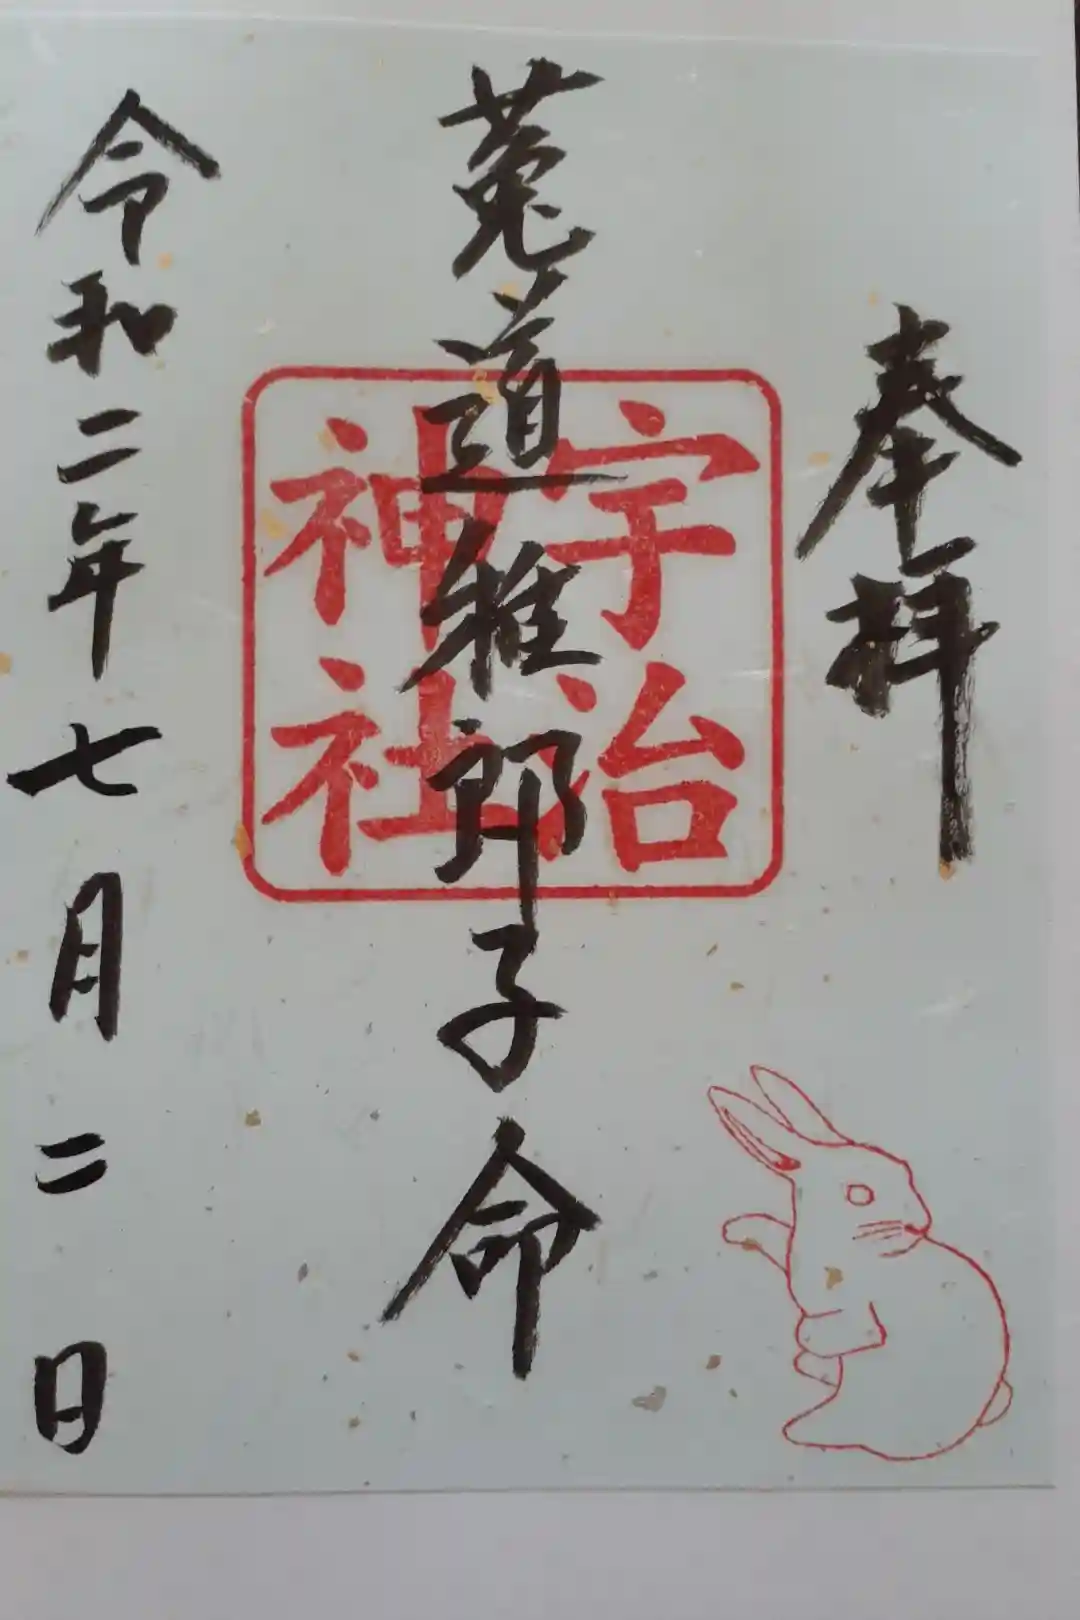 奉拝
菟道稚郎子命
宇治
神社
令和二年七月二日